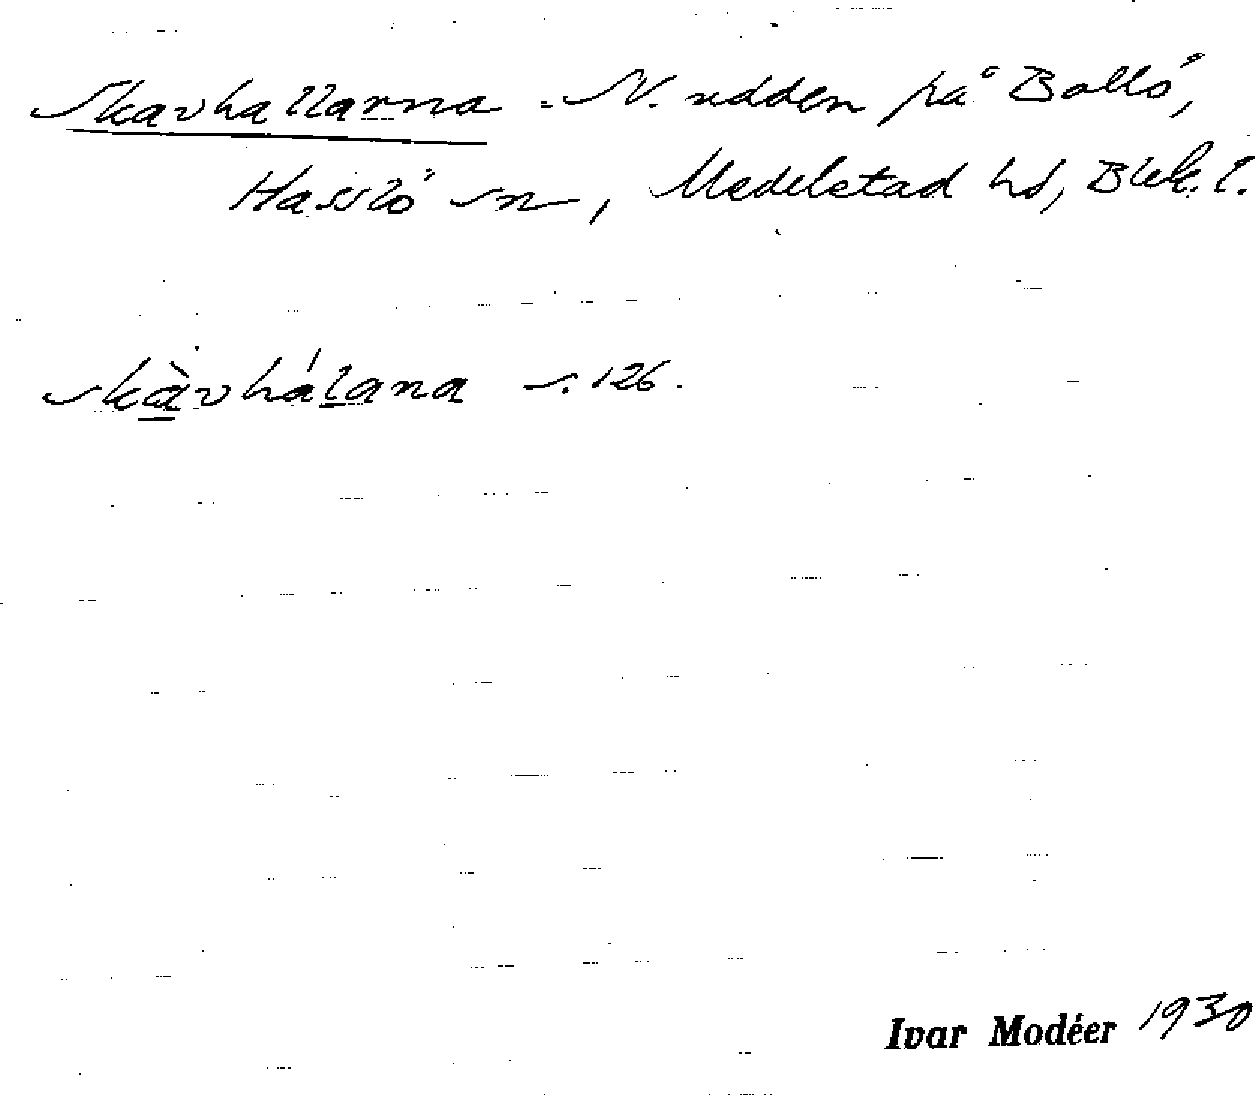 Skavhallarna - N. udden på Bollö,
Hasslö sn, Medelstad hd, Blek. l.
skàvhálana s. 126.
Ivar Modéer 1930